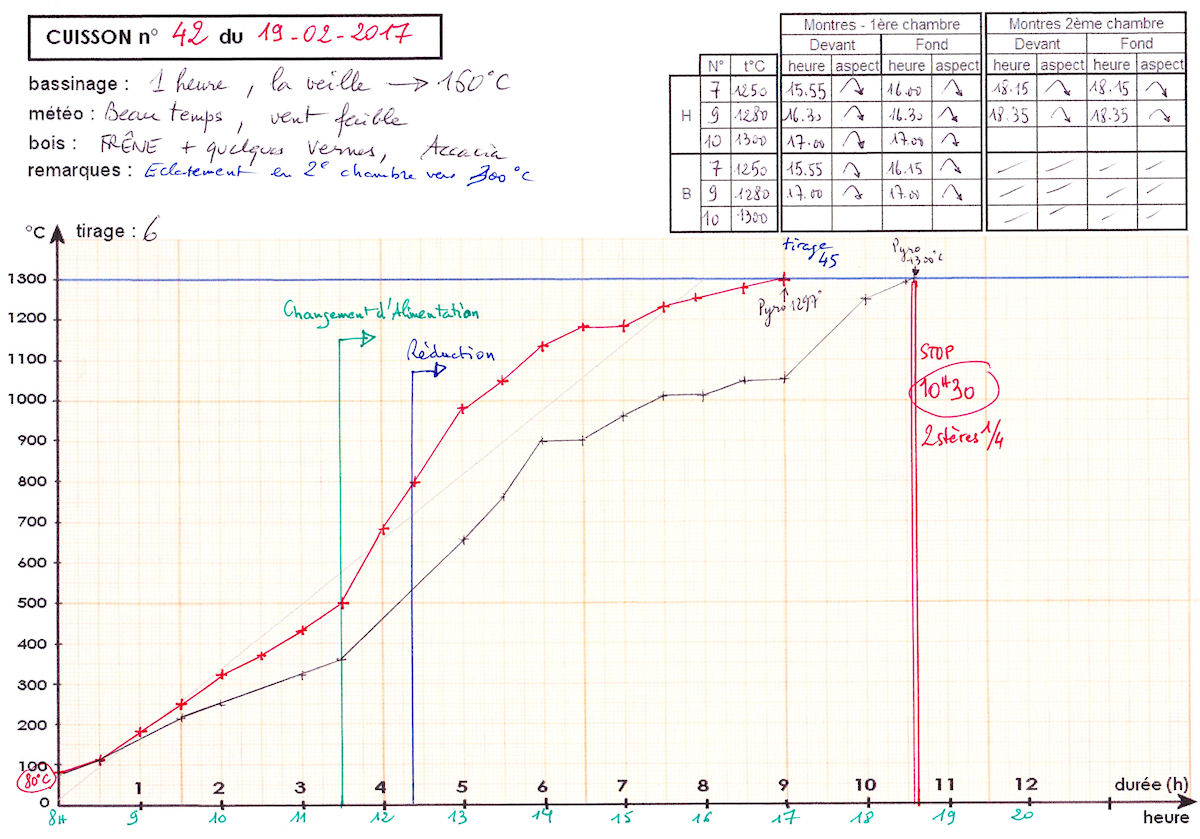 CUISSON n° 42 du 19-02-2017
bassinage : 1 heure, la veille → 160°C
météo : Beau temps, vent faible
bois : FRÊNE + quelques vernes, Accacia
remarques : Eclatement en 2e chambre vers 300°C
Montres - 1ère chambre Montres 2ème chambre
Devant Fond Devant Fond
N° t°C heure aspect heure aspect heure aspect heure aspect
H
7 1250 15.55 16.00 18.15 18.15
9 1280 16.30 16.30 18.35 18.35
10 1300 17.00 17.00
B
7 1250 15.55 16.15
9 1280 17.00 17.00
10 1300
°C tirage : 6
tirage
45
Pyro
1300°C
1300
Pyro 1297°
Changement d'Alimentation
1200
Réduction
1100
STOP
10H30
1000
2 stères 1/4
900
800
700
600
500
400
300
200
100
80°C
0
1 2 3 4 5 6 7 8 9 10 11 12 durée (h)
8H 9 10 11 12 13 14 15 16 17 18 19 20 heure